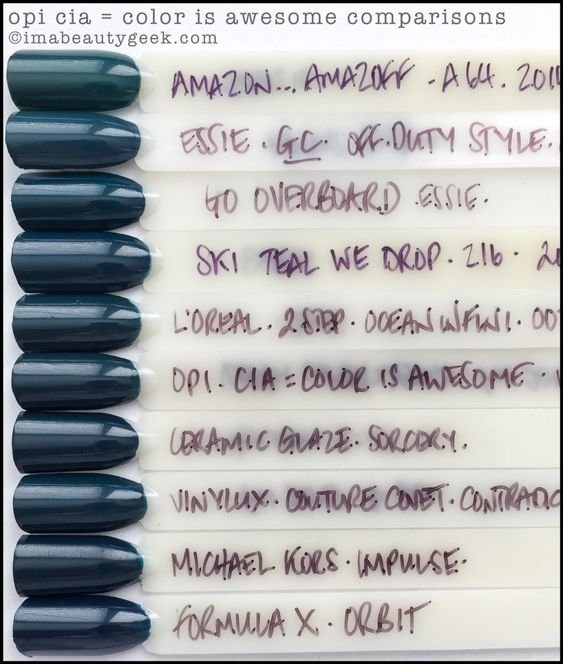 opi cia = color is awesome comparisons
©imabeautygeek.com
AMAZON... AMAZOFF . A64. 201
ESSIE . GC. OFF.DUTY STYLE.
GO OVERBOARD . ESSIE.
SKI TEAL WE DROP . 216 . 20
L'OREAL . 2 STEP . OCEAN INFINI . 00
OPI . CIA = COLOR IS AWESOME .
CERAMIC GLAZE. SORCERY.
VINYLUX . COUTURE COVET . CONTRADIC
MICHAEL KORS . IMPULSE.
FORMULA X . ORBIT